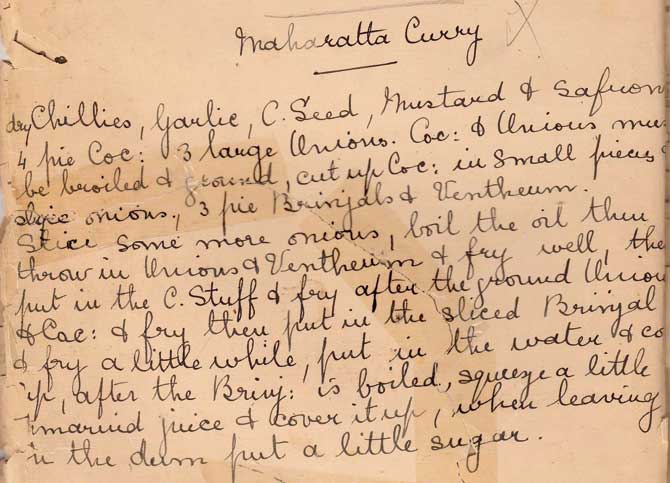 Maharatta Curry
dry Chillies, Garlic, C. Seed, Mustard & Safron
4 pie Coc: 3 large Unions. Coc: & Unions mus
be broiled & ground, cut up Coc: in small pieces &
slice onions, 3 pie Brinjals & Ventheum.
Slice some more onions, boil the oil then
throw in Unions & Ventheum & fry well, the
put in the C. Stuff & fry after the ground Union
& Coc: & fry then put in the sliced Brinjal
& fry a little while, put in the water & co
up, after the Brinj: is boiled, squeeze a little
tmarind juice & cover it up, when leaving
in the dum put a little sugar.